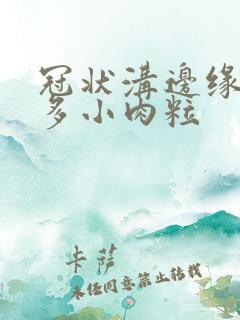 冠状溝邊缘
多小肉粒
卡萨
未经同意禁止转载